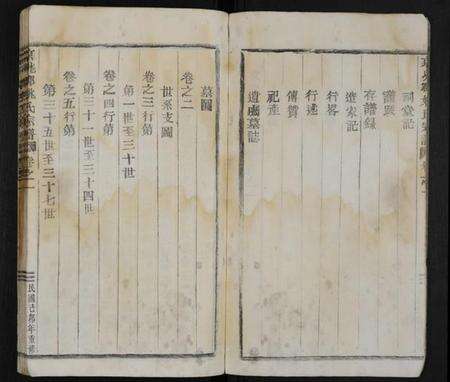 祠堂記
存譜錄
進家記
行畧
行述
傳贊
祀產
遺囑墓誌
墓圖
卷之二
世系支圖
卷之三行第
第一世至三十世
卷之四行第
第三十一世至三十四世
卷之五行第
第三十五世至三十七世
民國己卯年重修